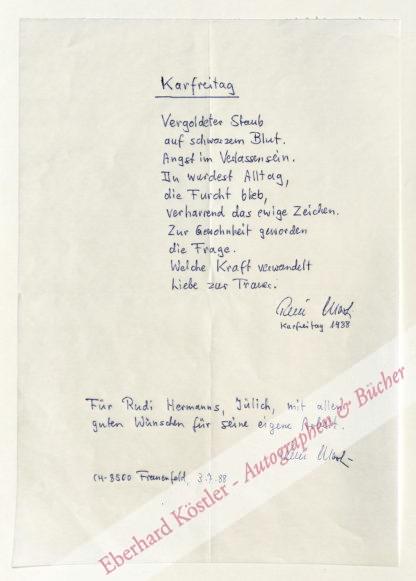 Karfreitag
Vergoldeter Staub
auf schwarzem Blut.
Angst im Verlassensein.
Du wurdest Alltag,
die Furcht blieb,
verharrend das ewige Zeichen.
Zur Gewohnheit geworden
die Frage.
Welche Kraft verwandelt
Liebe zur Trauer.
Karfreitag 1988
Für Rudi Hermanns, Jülich, mit allen
guten Wünschen für seine eigene Arbeit.
CH-8500 Frauenfeld, 3.7.88
Eberhard Köstler - Autographen & Bücher